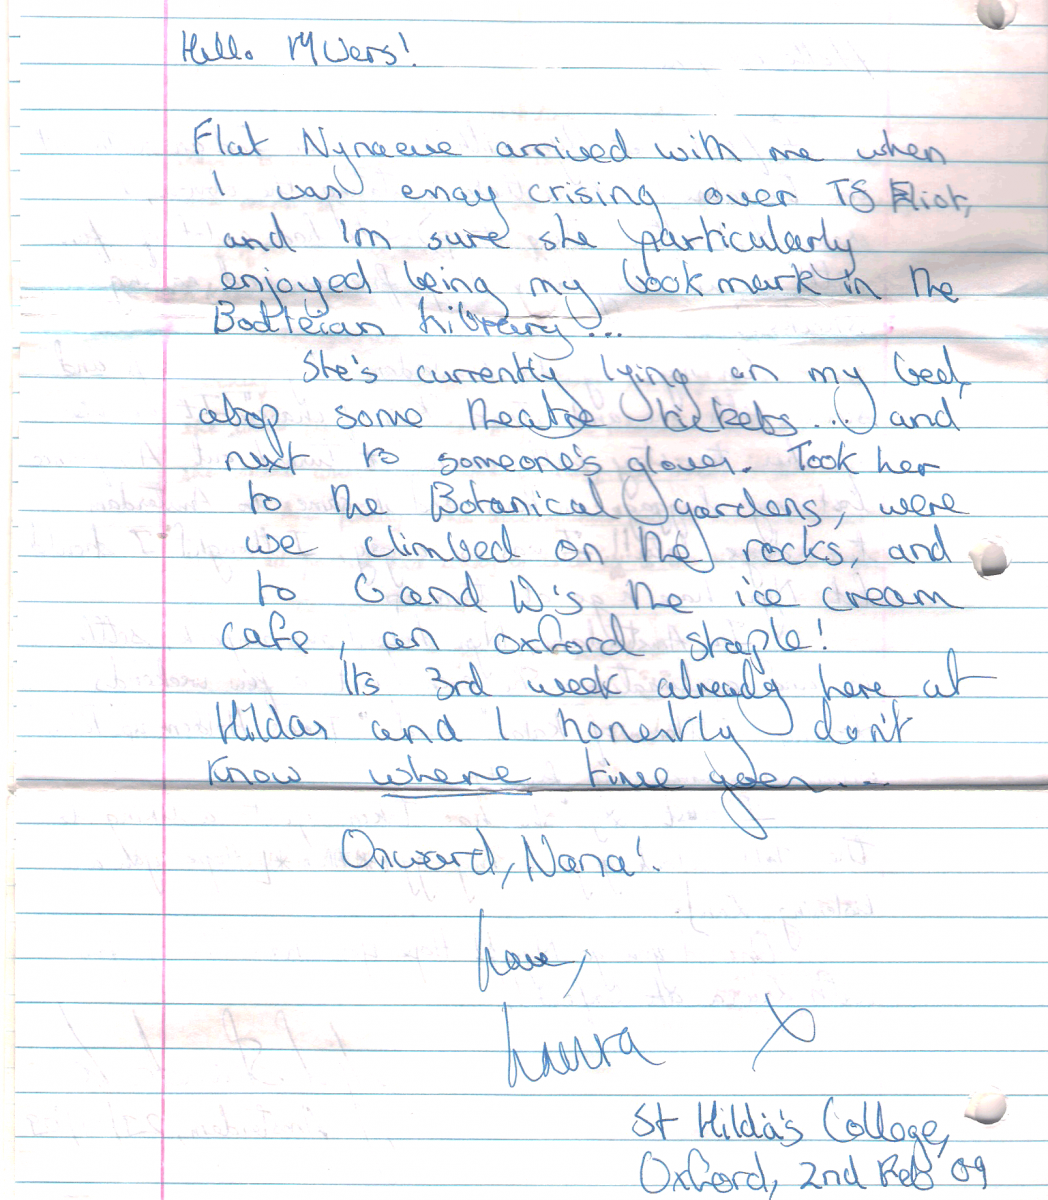 Hello MWers!
Flat Nynaeve arrived with me when
I was essay crising over TS Eliot,
and Im sure she particularly
enjoyed being my bookmark in the
Bodleian Library...
She's currently lying on my bed,
atop some theatre tickets... and
next to someone's gloves. Took her
to the Botanical gardens, were
we climbed on the rocks, and
to G and D's the ice cream
cafe, an oxford staple!
Its 3rd week already here at
Hildas and I honestly don't
know where time goes...
Onward, Nana!
Love,
Laura X
St Hilda's College,
Oxford, 2nd Feb 09